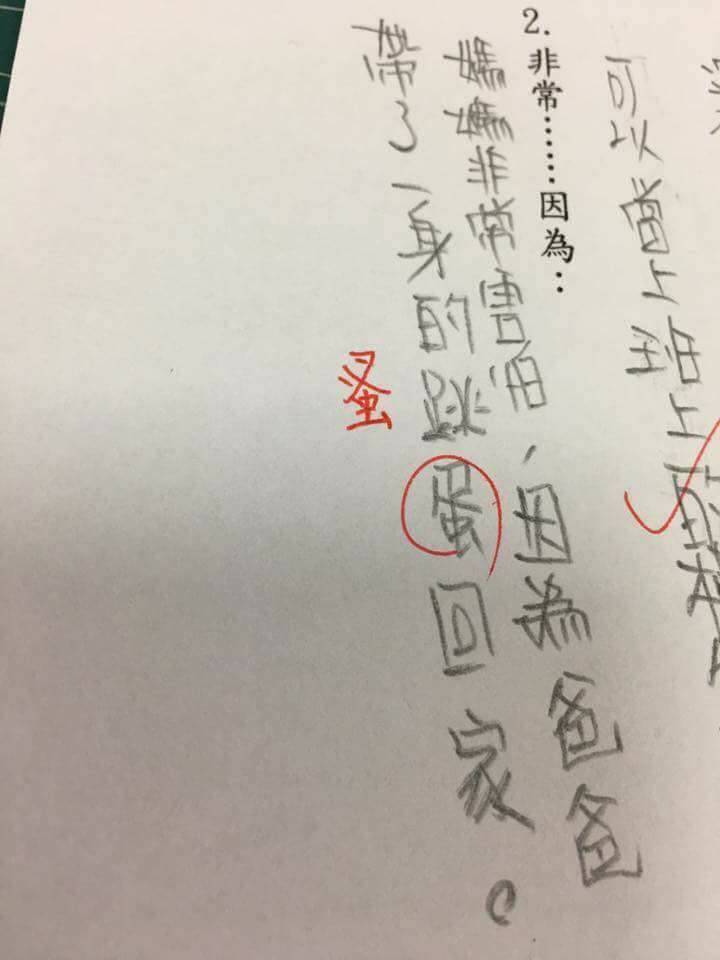 可以當上班上
2.非常……因為…
媽媽非常害怕,因為爸爸
帶了一身的跳蛋回家。
蚤